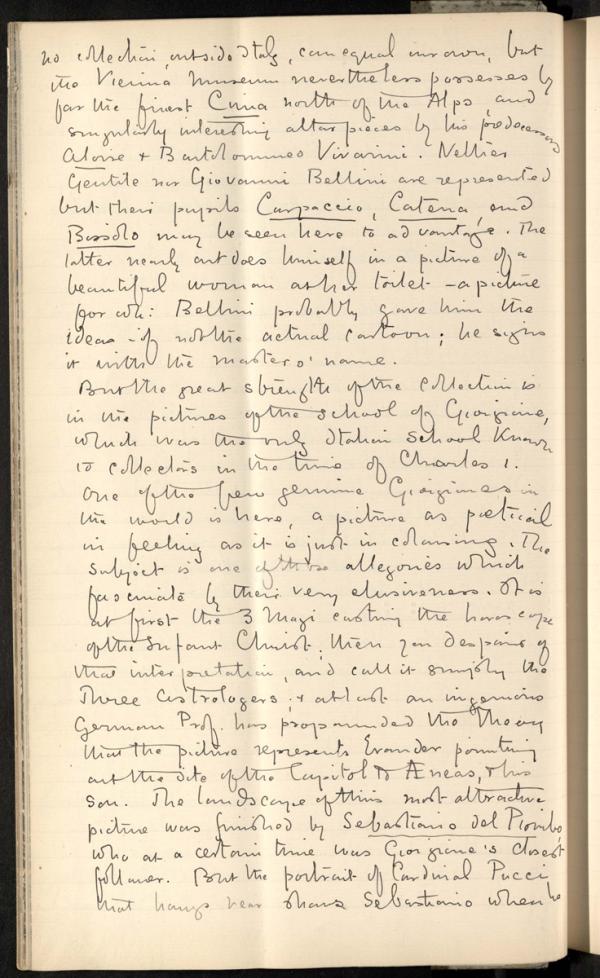 no collection, outside Italy, can equal our own, but
the Vienna Museum nevertheless possesses by
far the finest Cima north of the Alps, and
singularly interesting altar pieces by his predecessors
Alvise + Bartolommeo Vivarini. Neither
Gentile nor Giovanni Bellini are represented
but their pupils Carpaccio, Catena, and
Bissolo may be seen here to advantage. The
latter nearly outdoes himself in a picture of a
beautiful woman at her toilet - a picture
for wh: Bellini probably gave him the
idea - if not the actual cartoon; he signs
it with the masters' name.
But the great strength of the collection is
in the pictures of the school of Giorgione,
which was the only Italian School known
to collectors in the time of Charles I.
One of the few genuine Giorgiones in
the world is here, a picture as poetical
in feeling as it is just in colouring. The
subject is one of those allegories which
fascinate by their very elusiveness. It is
at first the 3 Magi casting the horoscope
of the Infant Christ; then you despair of
that interpretation, and call it simply the
Three Astrologers; + at last an ingenious
German Prof. has propounded the theory
that the picture represents Evander pointing
out the site of the Capitol to Æneas, + his
son. The landscape of this most attractive
picture was finished by Sebastiano del Piombo,
who at a certain time was Giorgione's closest
follower. But the portrait of Cardinal Pucci
that hangs near shows Sebastiano when he